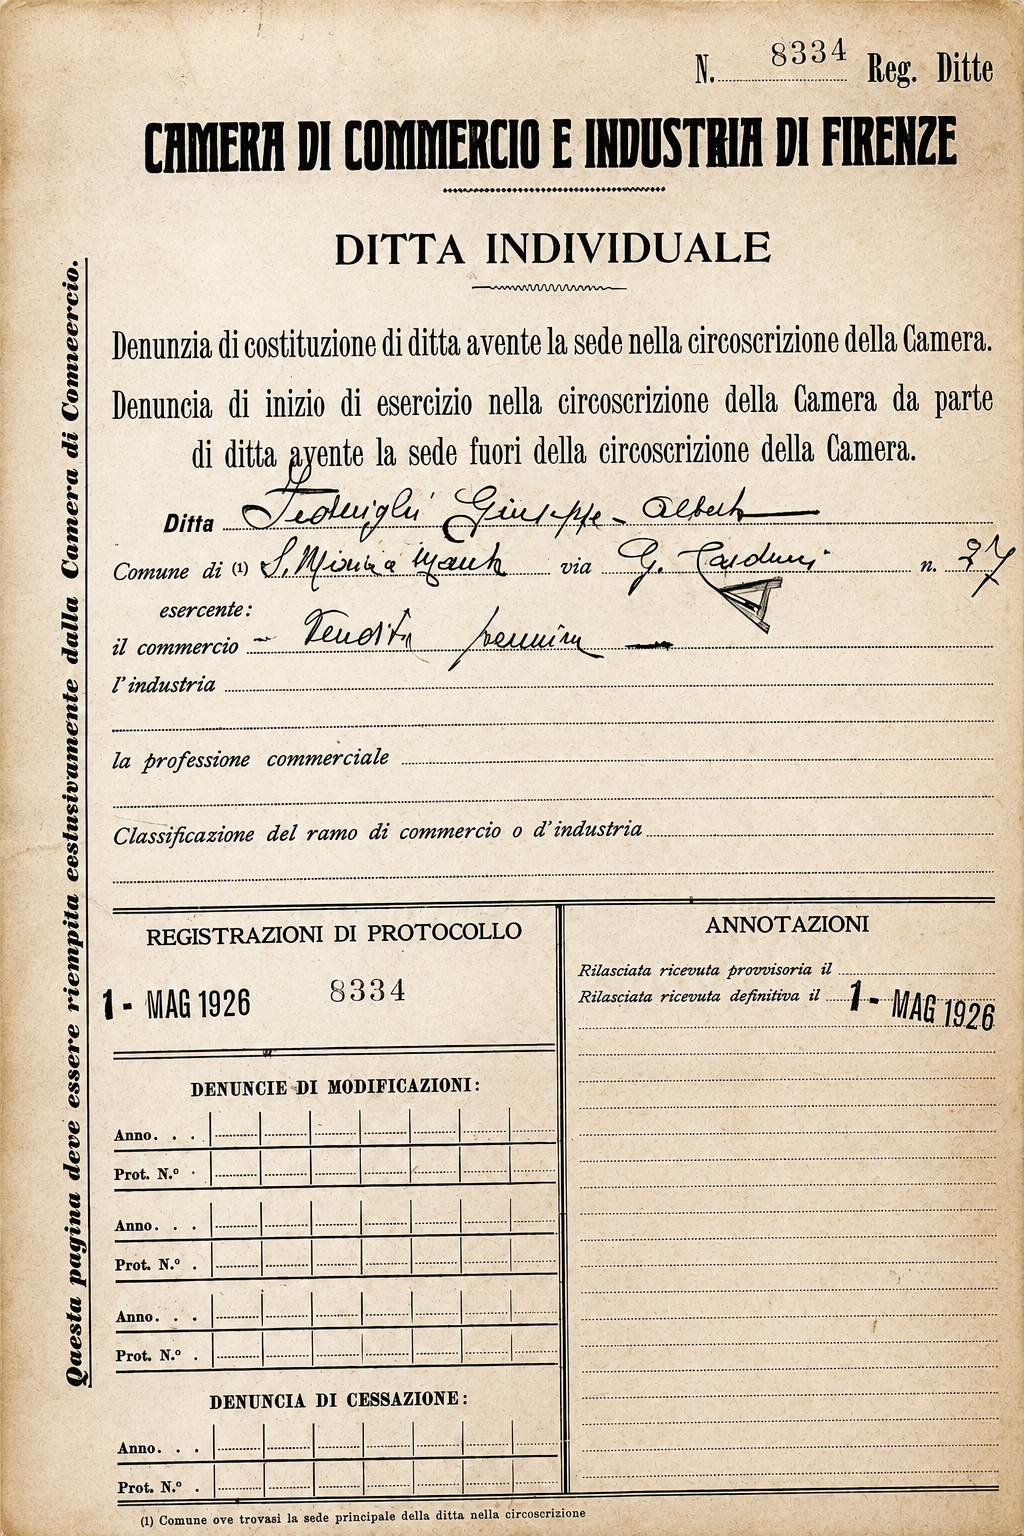 N. 8334 Reg. Ditte
CAMERA DI COMMERCIO E INDUSTRIA DI FIRENZE
DITTA INDIVIDUALE
Denunzia di costituzione di ditta avente la sede nella circoscrizione della Camera.
Denuncia di inizio di esercizio nella circoscrizione della Camera da parte
di ditta avente la sede fuori della circoscrizione della Camera.
Ditta Giuseppe - Alberto
Comune di (1) S. Miniato via G. Carducci n. 27
esercente:
il commercio - Vendita
l'industria
la professione commerciale
Classificazione del ramo di commercio o d'industria
REGISTRAZIONI DI PROTOCOLLO
1 - MAG 1926 8334
DENUNCIE DI MODIFICAZIONI:
Anno. . .
Prot. N.º .
Anno. . .
Prot. N.º .
Anno. . .
Prot. N.º .
DENUNCIA DI CESSAZIONE:
Anno. . .
Prot. N.º .
ANNOTAZIONI
Rilasciata ricevuta provvisoria il
Rilasciata ricevuta definitiva il 1 - MAG 1926
(1) Comune ove trovasi la sede principale della ditta nella circoscrizione
Qaesta pagina deve essere riempita eeslusivamente dalla Camera di Comeercio.